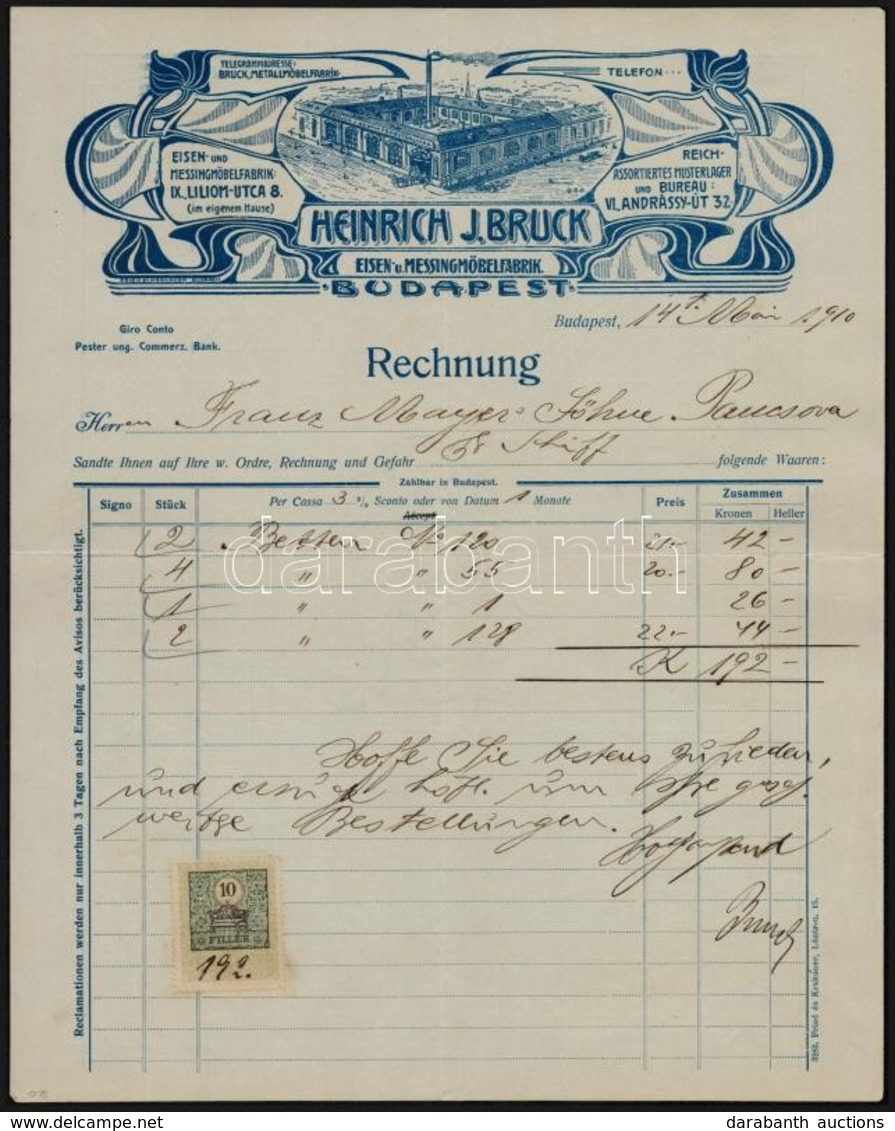 TELEGRAMMADRESSE:
BRUCK, METALLMÖBELFABRIK
TELEFON
EISEN- UND
MESSINGMÖBELFABRIK:
IX. LILIOM-UTCA 8.
(im eigenen Hause)
REICH-
ASSORTIERTES MUSTERLAGER
UND BUREAU:
VI. ANDRÁSSY-ÚT 32.
HEINRICH J. BRUCK
EISEN- u. MESSINGMÖBELFABRIK.
BUDAPEST
Giro Conto
Pester ung. Commerz. Bank.
Budapest, 14ten Mai 1910
Rechnung
Herren Franz Mayer's Söhne Pancsova
Sandte Ihnen auf Ihre w. Ordre, Rechnung und Gefahr pr Schiff folgende Waaren:
Zahlbar in Budapest.
Signo Stück Per Cassa 3 % Sconto oder von Datum 1 Monate Preis Zusammen
Accept Kronen Heller
2 Betten No 120 21.- 42 -
4 " " 55 20.- 80 -
1 " " 1 26 -
2 " " 128 22.- 44 -
K 192 -
Hoffe Sie bestens zufrieden,
und höfl. um Ihre
Bestellungen.
Bruck
10
FILLÉR
192.
Reclamationen werden nur innerhalb 3 Tagen nach Empfang des Avisos berücksichtigt.
3282. Fried és Krakauer,
darabanth
darabanth auctions